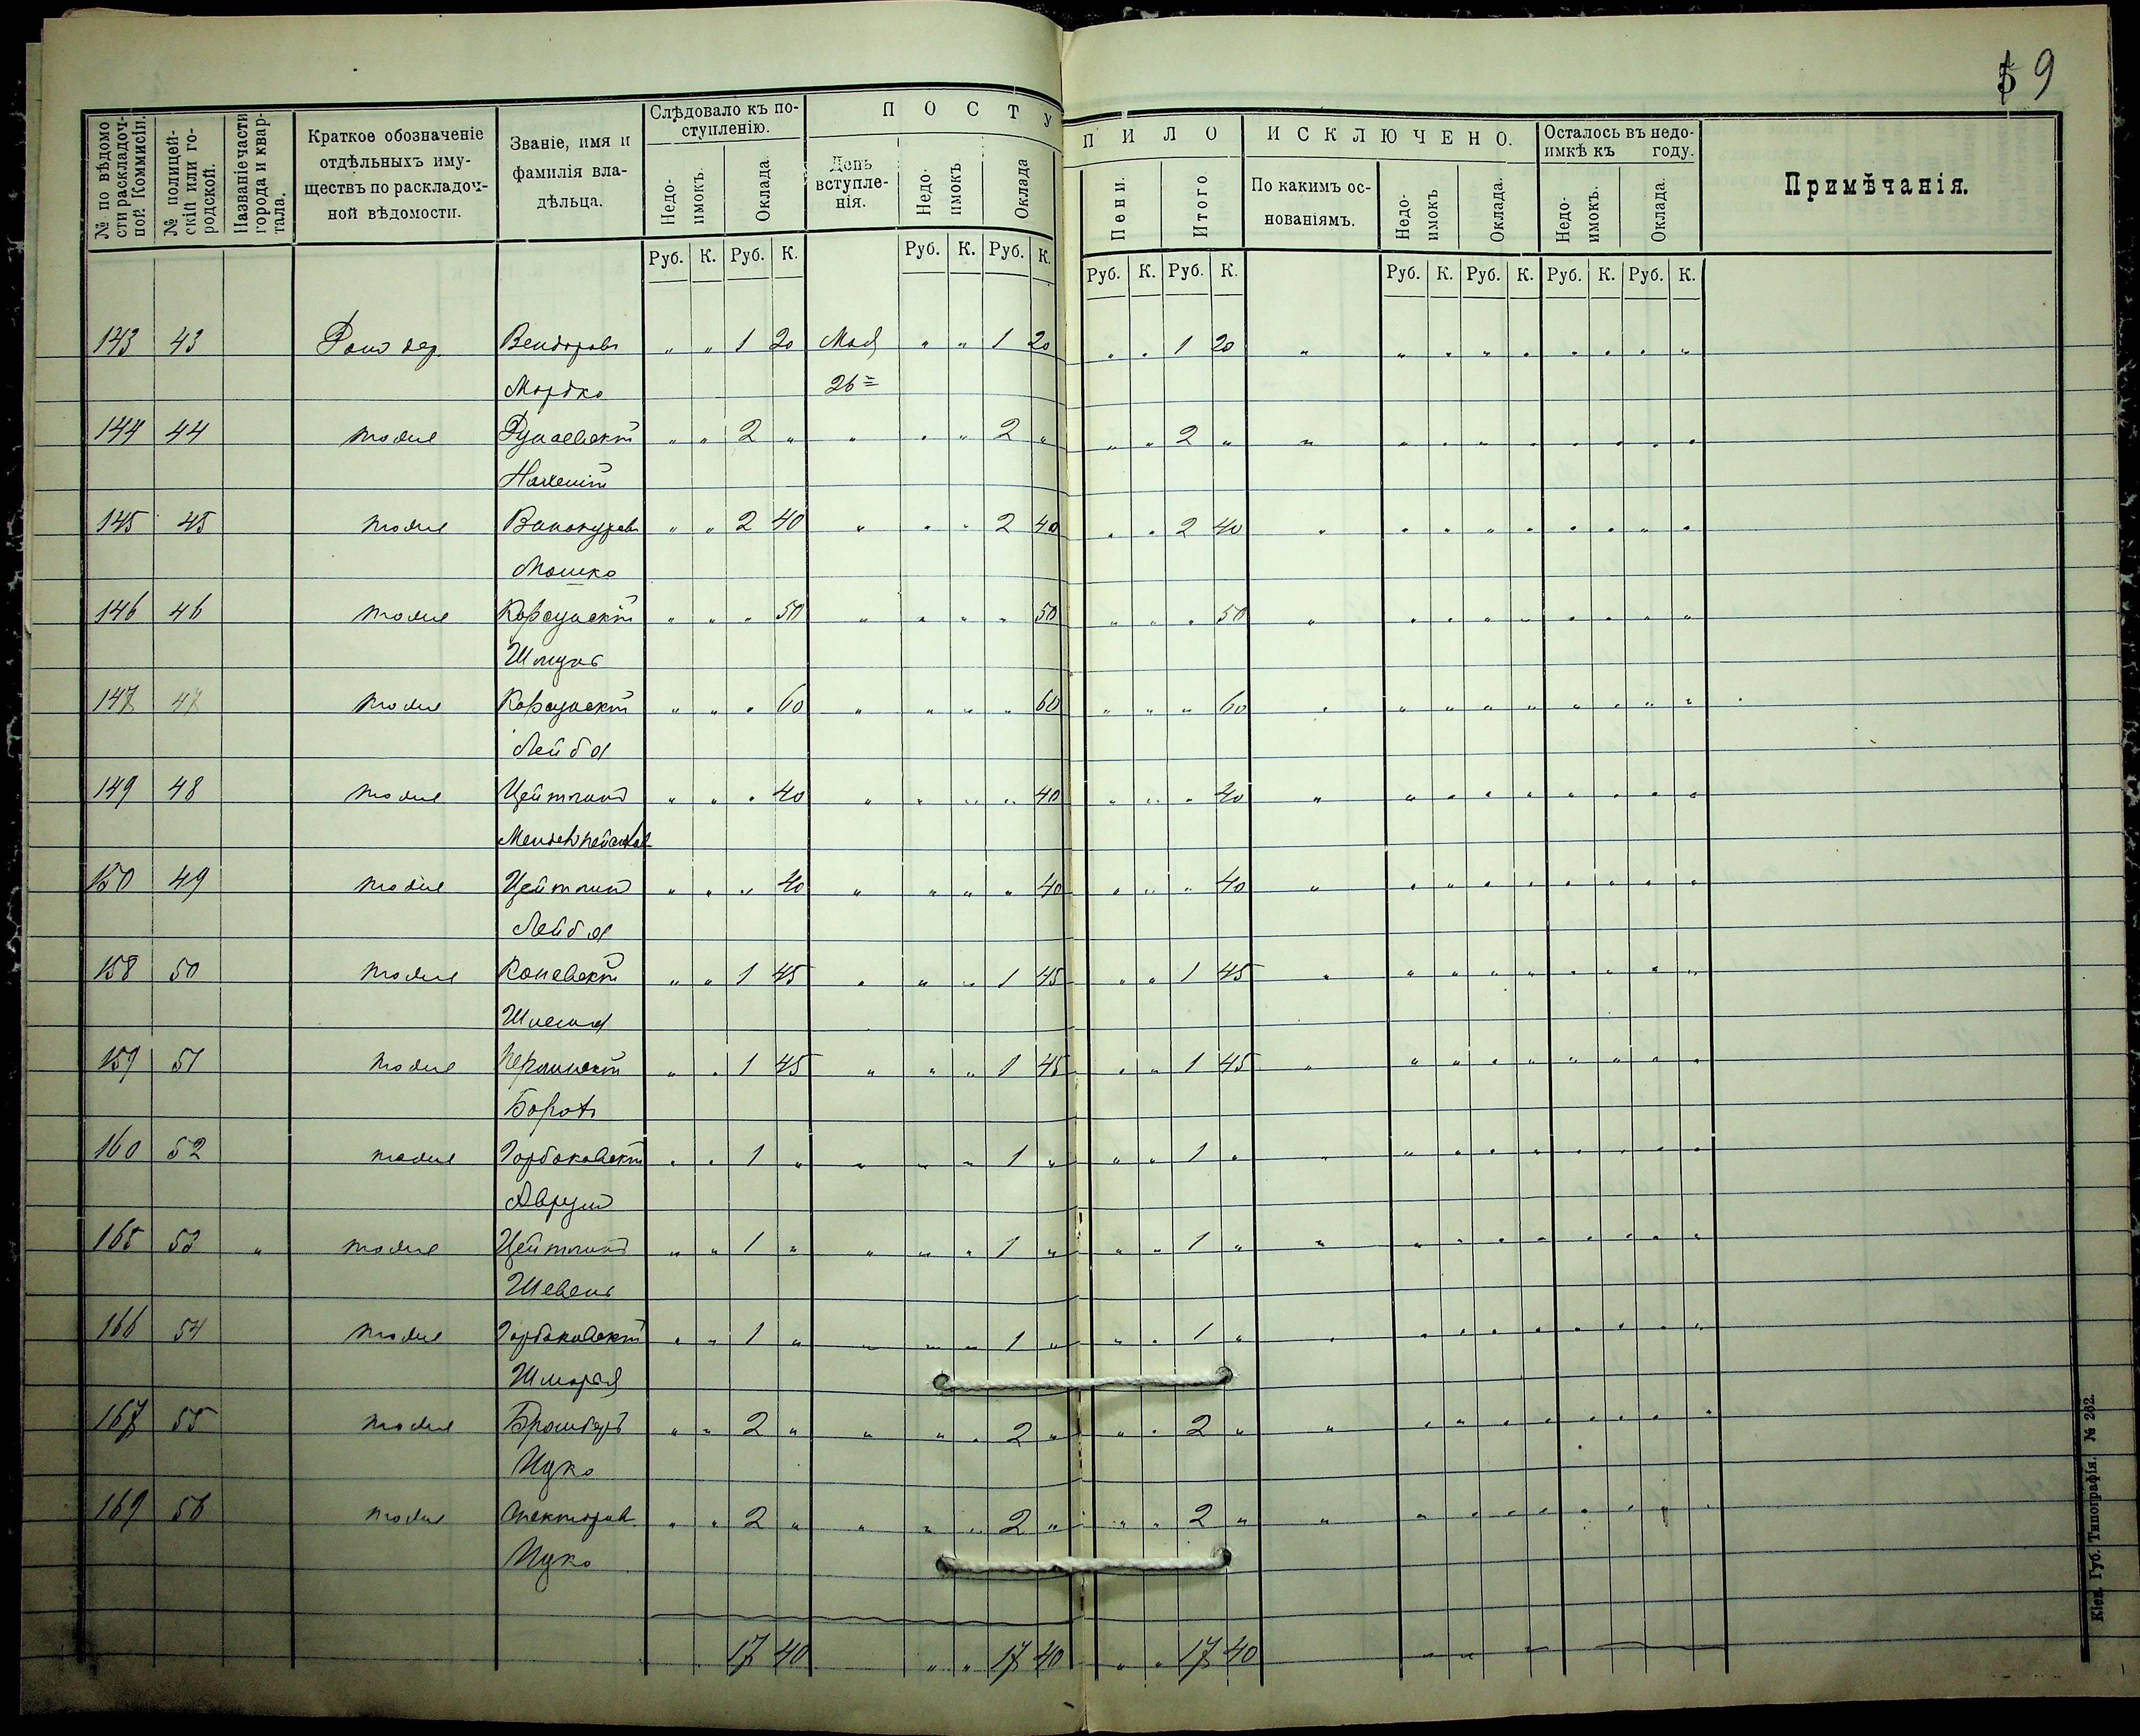 59
№ по вѣдомости раскладочной Коммисіи.
№ полицейскій или городской.
Названіе части города и квартала.
Краткое обозначеніе отдѣльныхъ имуществъ по раскладочной вѣдомости.
Званіе, имя и фамилія владѣльца.
Слѣдовало къ поступленію.
Недоимокъ.
Оклада.
ПОСТУПИЛО
День вступленія.
Недоимокъ
Оклада
Пени.
Итого
ИСКЛЮЧЕНО.
По какимъ основаніямъ.
Недоимокъ
Оклада.
Осталось въ недоимкѣ къ году.
Недоимокъ.
Оклада.
Примѣчанія.
Руб. К. Руб. К. Руб. К. Руб. К. Руб. К. Руб. К. Руб. К. Руб. К. Руб. К. Руб. К.
143 43 " " 1 20 Мая " " 1 20 " " 1 20
Мордко 26
144 44 тоже " " 2 " " " " 2 " " " 2 "
145 45 тоже Винокуровъ " " 2 40 " " " 2 40 " " 2 40
Мошко
146 46 тоже Корсунскій " " " 50 " " " " 50 " " " 50
Шмуль
147 47 тоже Корсунскій " " " 60 " " " " 60 " " " 60
Лейба
149 48 тоже Цейтлин " " " 40 " " " " 40 " " " 40
150 49 тоже Цейтлин " " " 40 " " " " 40 " " " 40
Лейба
158 50 тоже Каневскій " " 1 45 " " " 1 45 " " 1 45
159 51 тоже " " 1 45 " " " 1 45 " " 1 45
160 52 тоже Горбаковскій " " 1 " " " " 1 " " " 1 "
Аврум
165 53 " тоже Цейтлин " " 1 " " " " 1 " " " 1 "
166 54 тоже Горбаковскій " " 1 " " " " 1 " " " 1 "
167 55 тоже " " 2 " " " " 2 " " " 2 "
Ицко
169 56 тоже Спекторов " " 2 " " " " 2 " " " 2 "
Ицко
17 40 " " 17 40 " " 17 40
Кіев. Губ. Типографія. № 262.